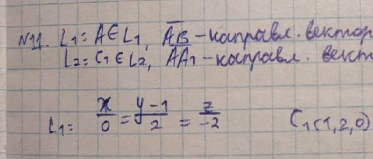 N11. L₁ = A ∈ L₁, AB̅ - направл. вектор
L₂ = C₁ ∈ L₂, A̅A̅₁ - направл. вект
L₁ = x/0 = y-1/2 = z/-2 C₁(1,2,0)